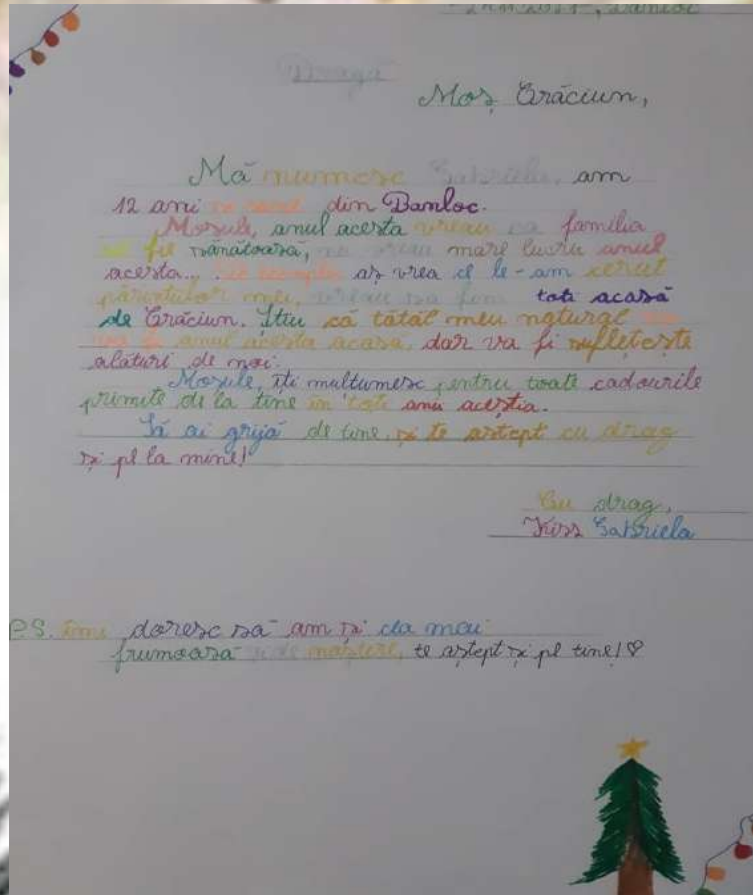 Dragă
Moș Crăciun,
Mă numesc Gabriela, am
12 ani din Banloc.
Moșule, anul acesta vreau ca familia
să fie sănătoasă, nu vreau mare lucru anul
acesta... de exemplu aș vrea ce le-am cerut
părinților mei, vreau să fim toti acasă
de Crăciun. Știu că tatăl meu natural nu
va fi anul acesta acasă, dar va fi sufletește
alături de noi.
Moșule, iți multumesc pentru toate cadourile
primite de la tine în toti anii aceștia.
Să ai grijă de tine, și te astept cu drag
și pe la mine!
Cu drag,
Kiss Gabriela
P.S. îmi doresc să am și cea mai
frumoasă zi de naștere, te aștept și pe tine! ♡